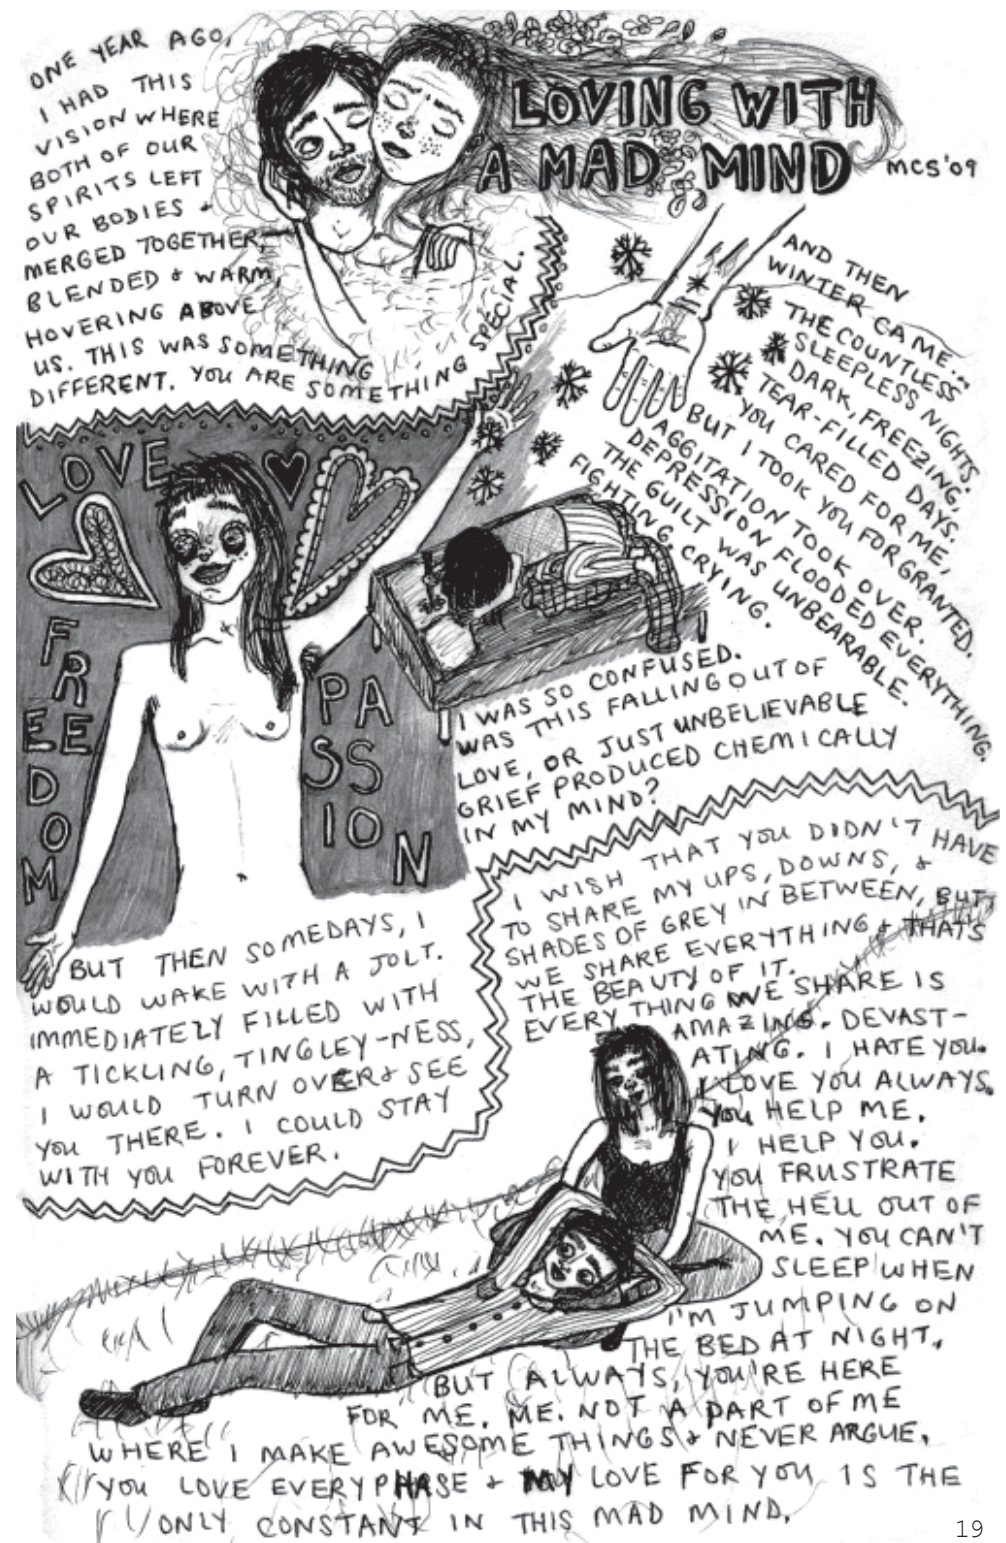 LOVING WITH
A MAD MIND
MCS'09
ONE YEAR AGO,
I HAD THIS
VISION WHERE
BOTH OF OUR
SPIRITS LEFT
OUR BODIES &
MERGED TOGETHER,
BLENDED & WARM,
HOVERING ABOVE
US. THIS WAS SOMETHING
DIFFERENT. YOU ARE SOMETHING SPECIAL.
AND THEN
WINTER CAME...
THE COUNTLESS
SLEEPLESS NIGHTS.
DARK, FREEZING,
TEAR-FILLED DAYS.
YOU CARED FOR ME,
BUT I TOOK YOU FOR GRANTED.
AGGITATION TOOK OVER.
DEPRESSION FLOODED EVERYTHING.
THE GUILT WAS UNBEARABLE.
FIGHTING. CRYING.
I WAS SO CONFUSED.
WAS THIS FALLING OUT OF
LOVE, OR JUST UNBELIEVABLE
GRIEF PRODUCED CHEMICALLY
IN MY MIND?
LOVE
FREEDOM
PASSION
BUT THEN SOMEDAYS, I
WOULD WAKE WITH A JOLT.
IMMEDIATELY FILLED WITH
A TICKLING, TINGLEY-NESS,
I WOULD TURN OVER & SEE
YOU THERE. I COULD STAY
WITH YOU FOREVER.
I WISH THAT YOU DIDN'T HAVE
TO SHARE MY UPS, DOWNS, &
SHADES OF GREY IN BETWEEN, BUT,
WE SHARE EVERYTHING & THAT'S
THE BEAUTY OF IT.
EVERYTHING WE SHARE IS
AMAZING. DEVAST-
ATING. I HATE YOU.
I LOVE YOU ALWAYS.
YOU HELP ME.
I HELP YOU.
YOU FRUSTRATE
THE HELL OUT OF
ME. YOU CAN'T
SLEEP WHEN
I'M JUMPING ON
THE BED AT NIGHT.
BUT ALWAYS, YOU'RE HERE
FOR ME. ME. NOT A PART OF ME
WHERE I MAKE AWESOME THINGS & NEVER ARGUE.
YOU LOVE EVERY PHASE & MY LOVE FOR YOU IS THE
ONLY CONSTANT IN THIS MAD MIND.
19